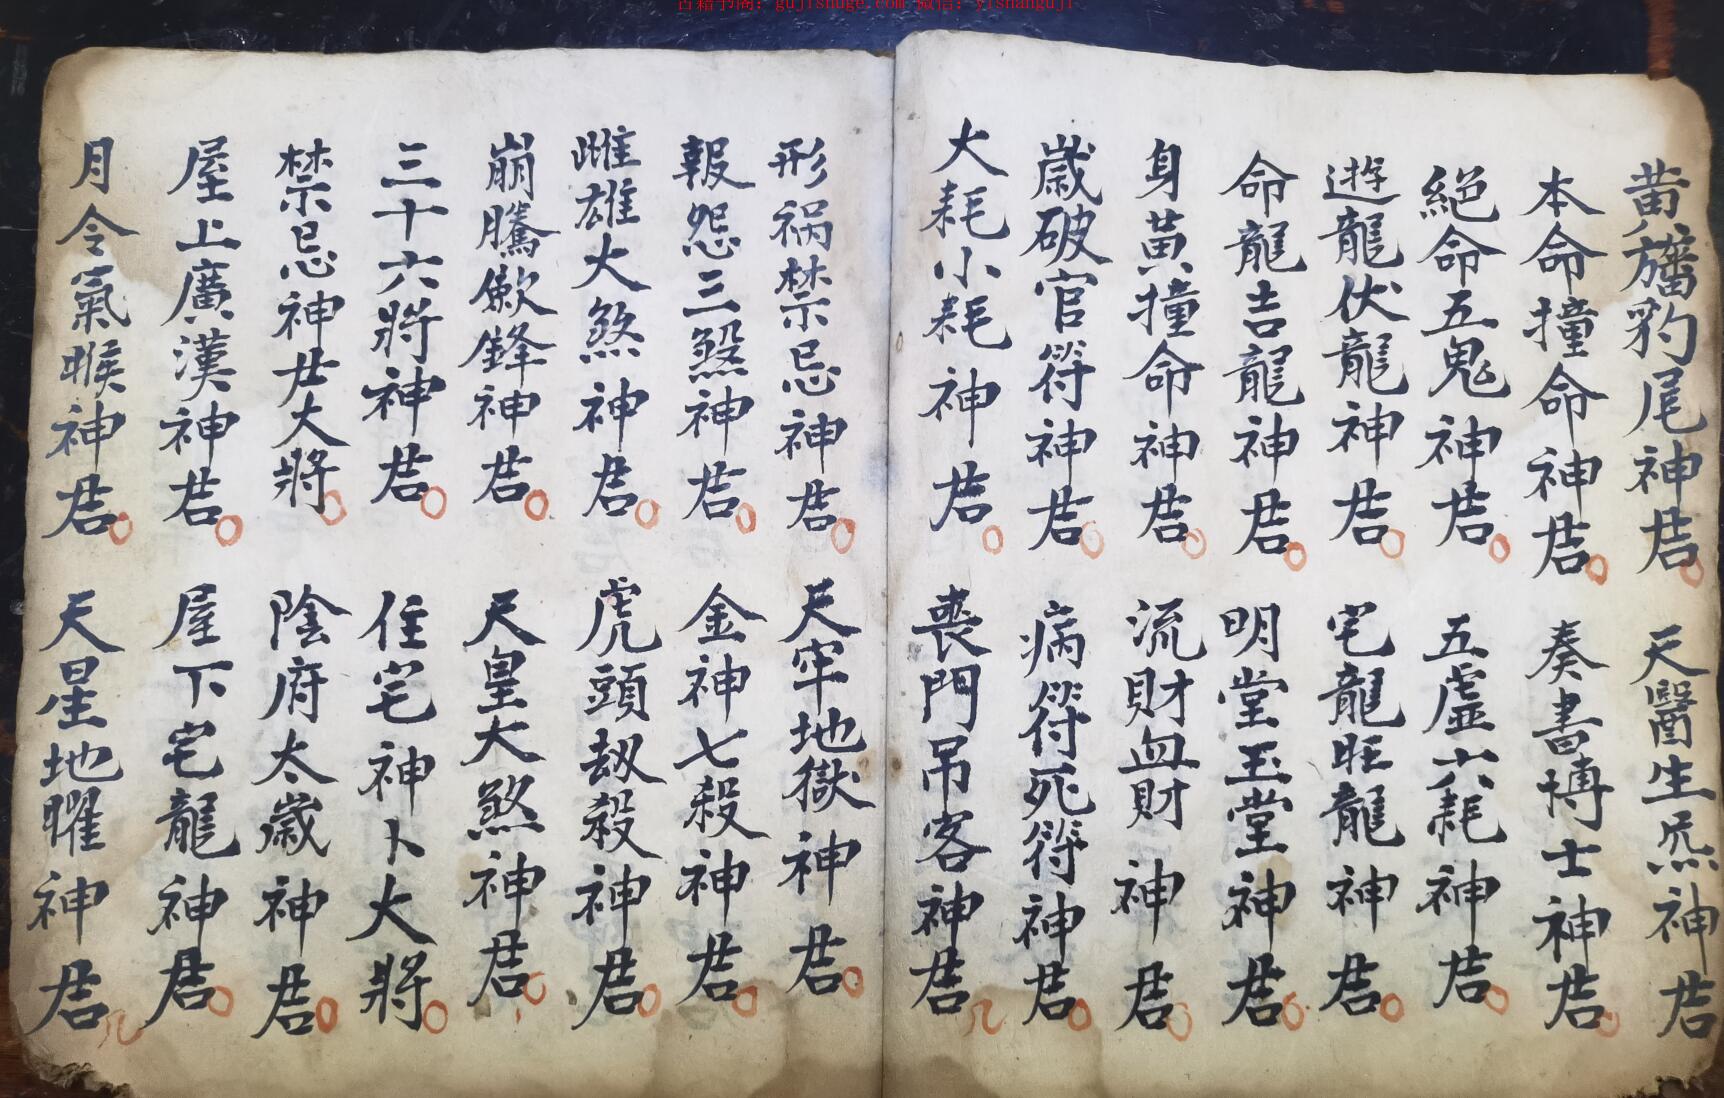 古籍书阁：gujishuge.com 微信：yishanguji
黄旛豹尾神君 天醫生炁神君
本命撞命神君 奏書博士神君
絕命五鬼神君 五虛六耗神君
遊龍伏龍神君 宅龍旺龍神君
命龍吉龍神君 明堂玉堂神君
身黃撞命神君 流財血財神君
歲破官符神君 病符死符神君
大耗小耗神君 喪門吊客神君
形禍禁忌神君 天牢地獄神君
報怨三煞神君 金神七殺神君
雌雄火煞神君 虎頭劫殺神君
崩騰鋒神君 天皇大煞神君
三十六將神君 住宅神卜大將
禁忌神君大將 陰府太歲神君
屋上廣漢神君 屋下宅龍神君
月令氣睺神君 天星地曜神君